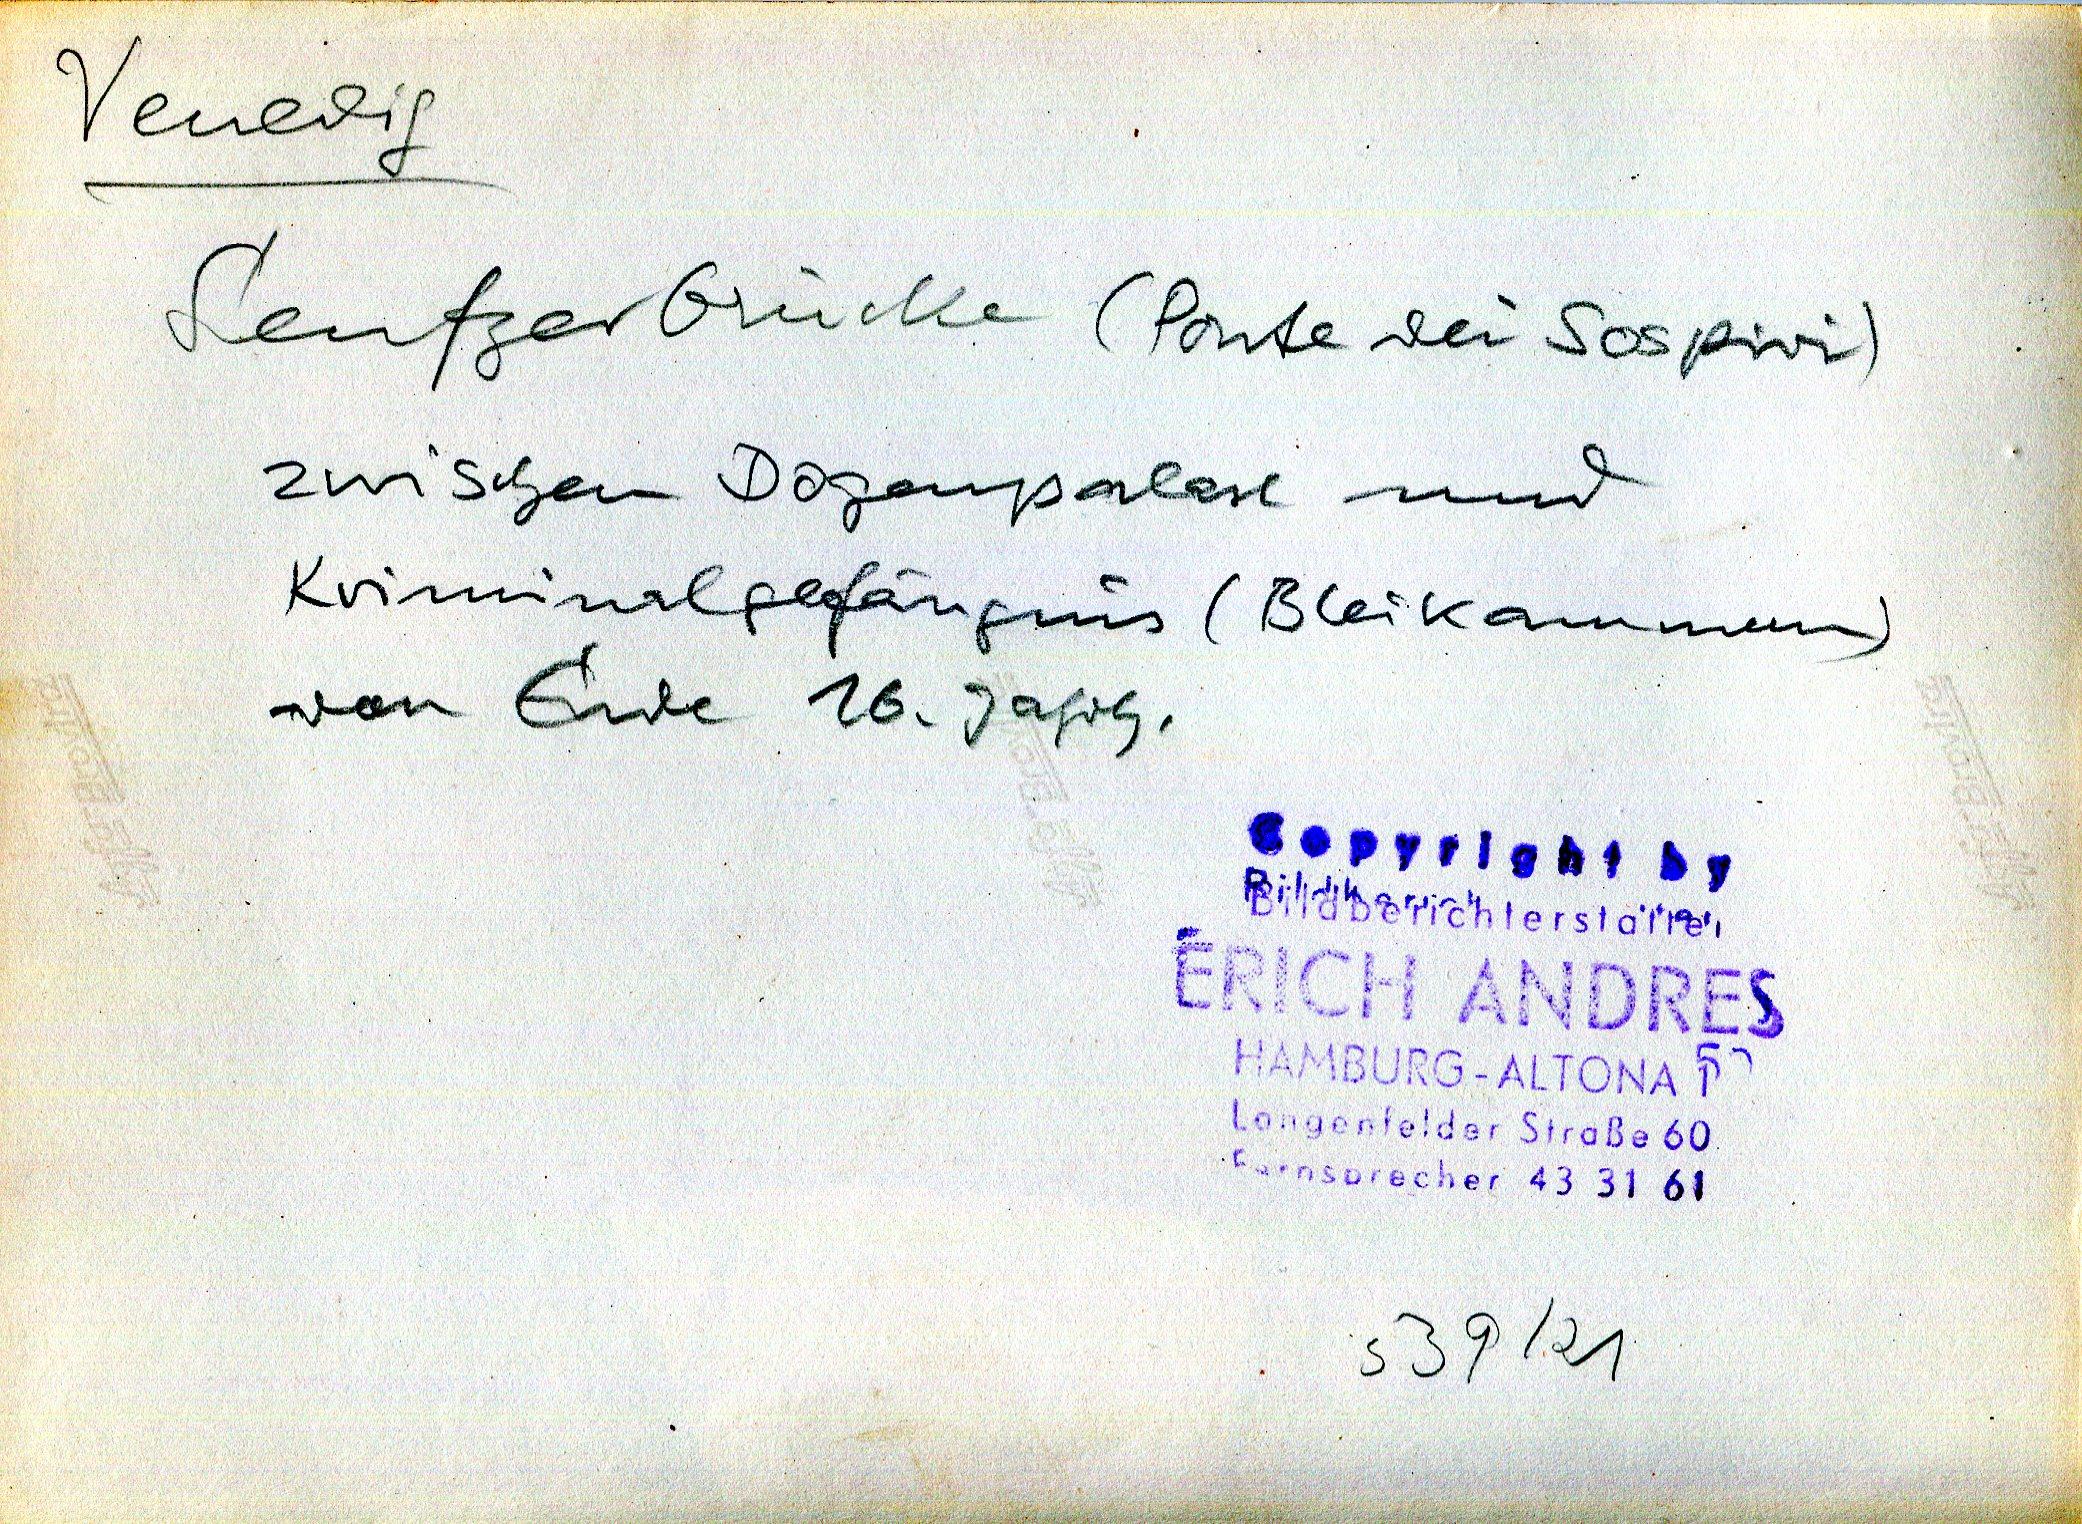 Venedig
Seufzerbrücke (Ponte dei Sospiri)
zwischen Dogenpalast und
Kriminalgefängnis (Bleikammern)
von Ende 16. Jahrh.
Copyright by
Bildberichterstatter
ERICH ANDRES
HAMBURG-ALTONA
Langenfelder Straße 60
Fernsprecher 43 31 61
s39/21